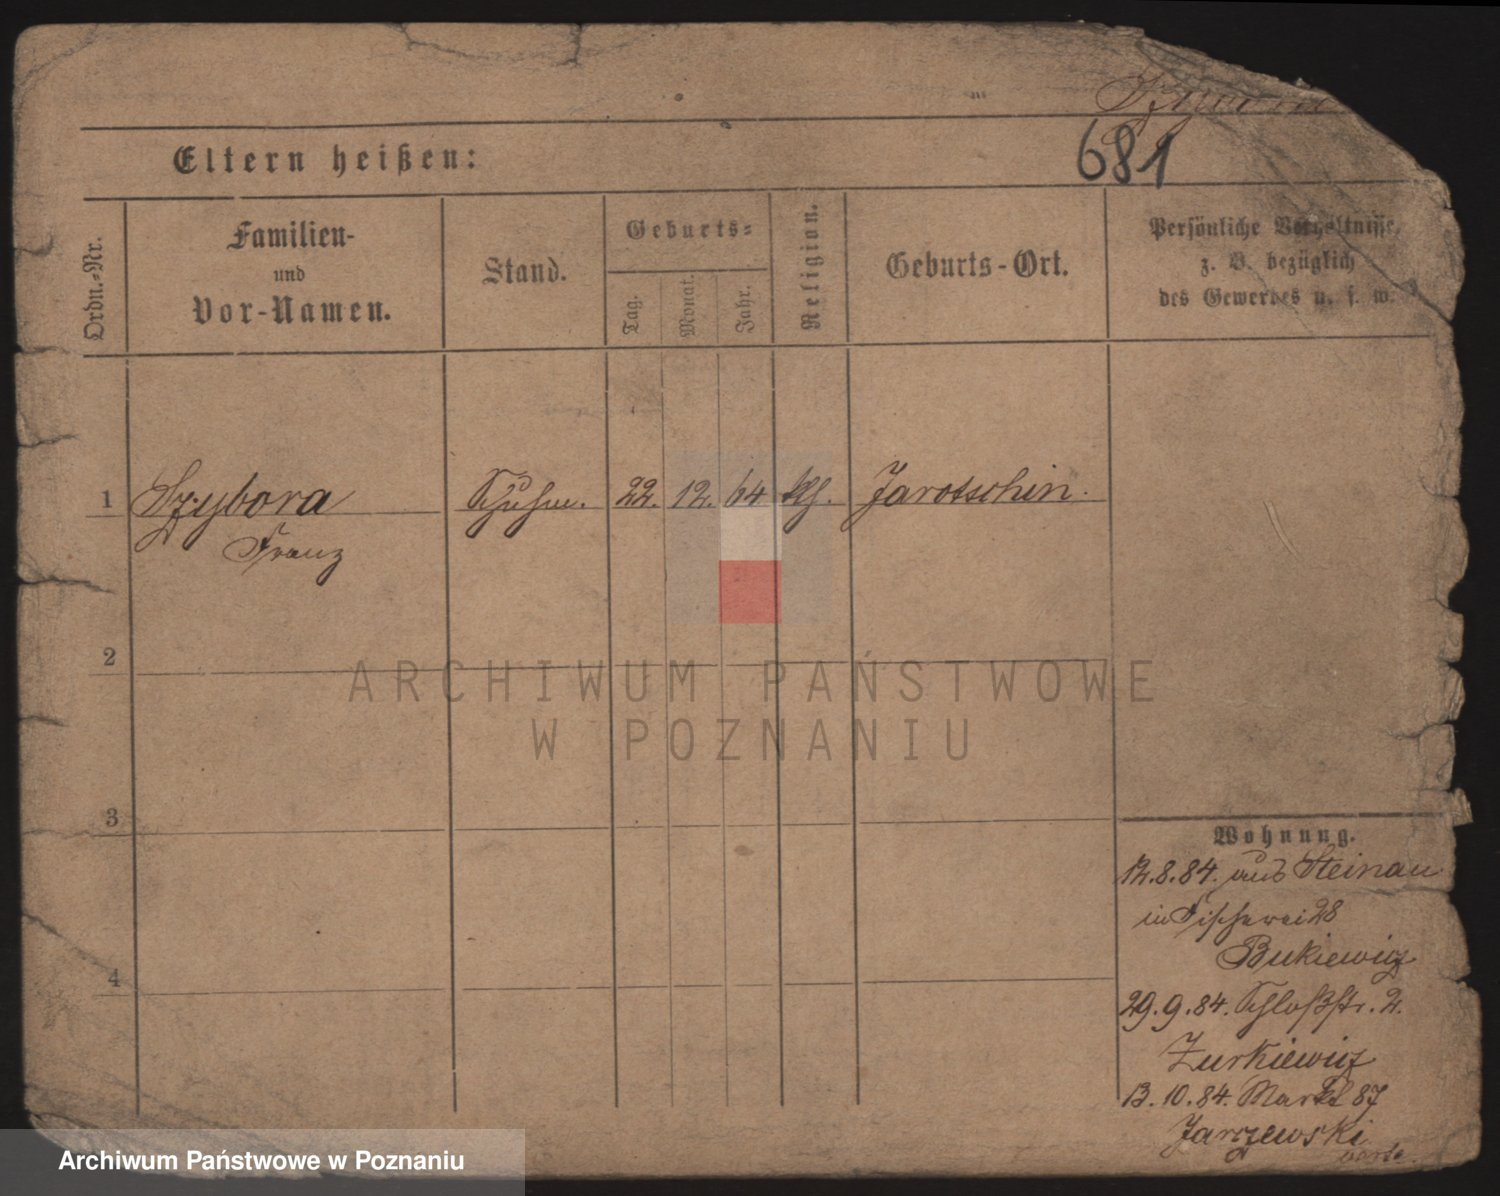 681
Eltern heißen:
Ordn.-Nr.
Familien-
und
Vor-Namen.
Stand.
Geburts-
Tag.
Monat.
Jahr.
Religion.
Geburts-Ort.
Persönliche Verhältnisse,
z. B. bezüglich
des Gewerbes u. s. w.
1 Szybora Schuhm. 22. 12. 64 kth. Jarotschin.
Franz
2
ARCHIWUM PAŃSTWOWE
W POZNANIU
3
Wohnung.
12.8.84. aus Steinau
in Fischerei 28
Bukiewicz
4
29.9.84. Schloßstr. 2.
Zurkiewicz
13.10.84. Markt 87
Jarczewski
Archiwum Państwowe w Poznaniu